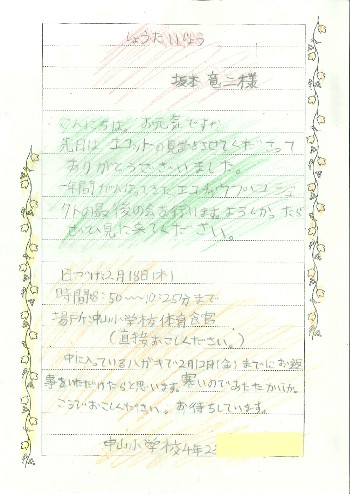 しょうたいじょう
坂本 竜二様
こんにちは。お元気ですか。
先日は、エコットの見学をさせてくださって
ありがとうございました。
一年間がんばってきた
クトの最後の会を行います。よろしかったら
ぜひ見に来てください。
日づけ:2月18日(木)
時間8:50〜10:25分まで
場所:中山小学校体育館
(直接おこしください。)
中に入っているハガキで2月12日(金)までにお返
事をいただけたらと思います。寒いのであたたかいかっ
こうでおこしください。お待ちしています。
中山小学校4年2